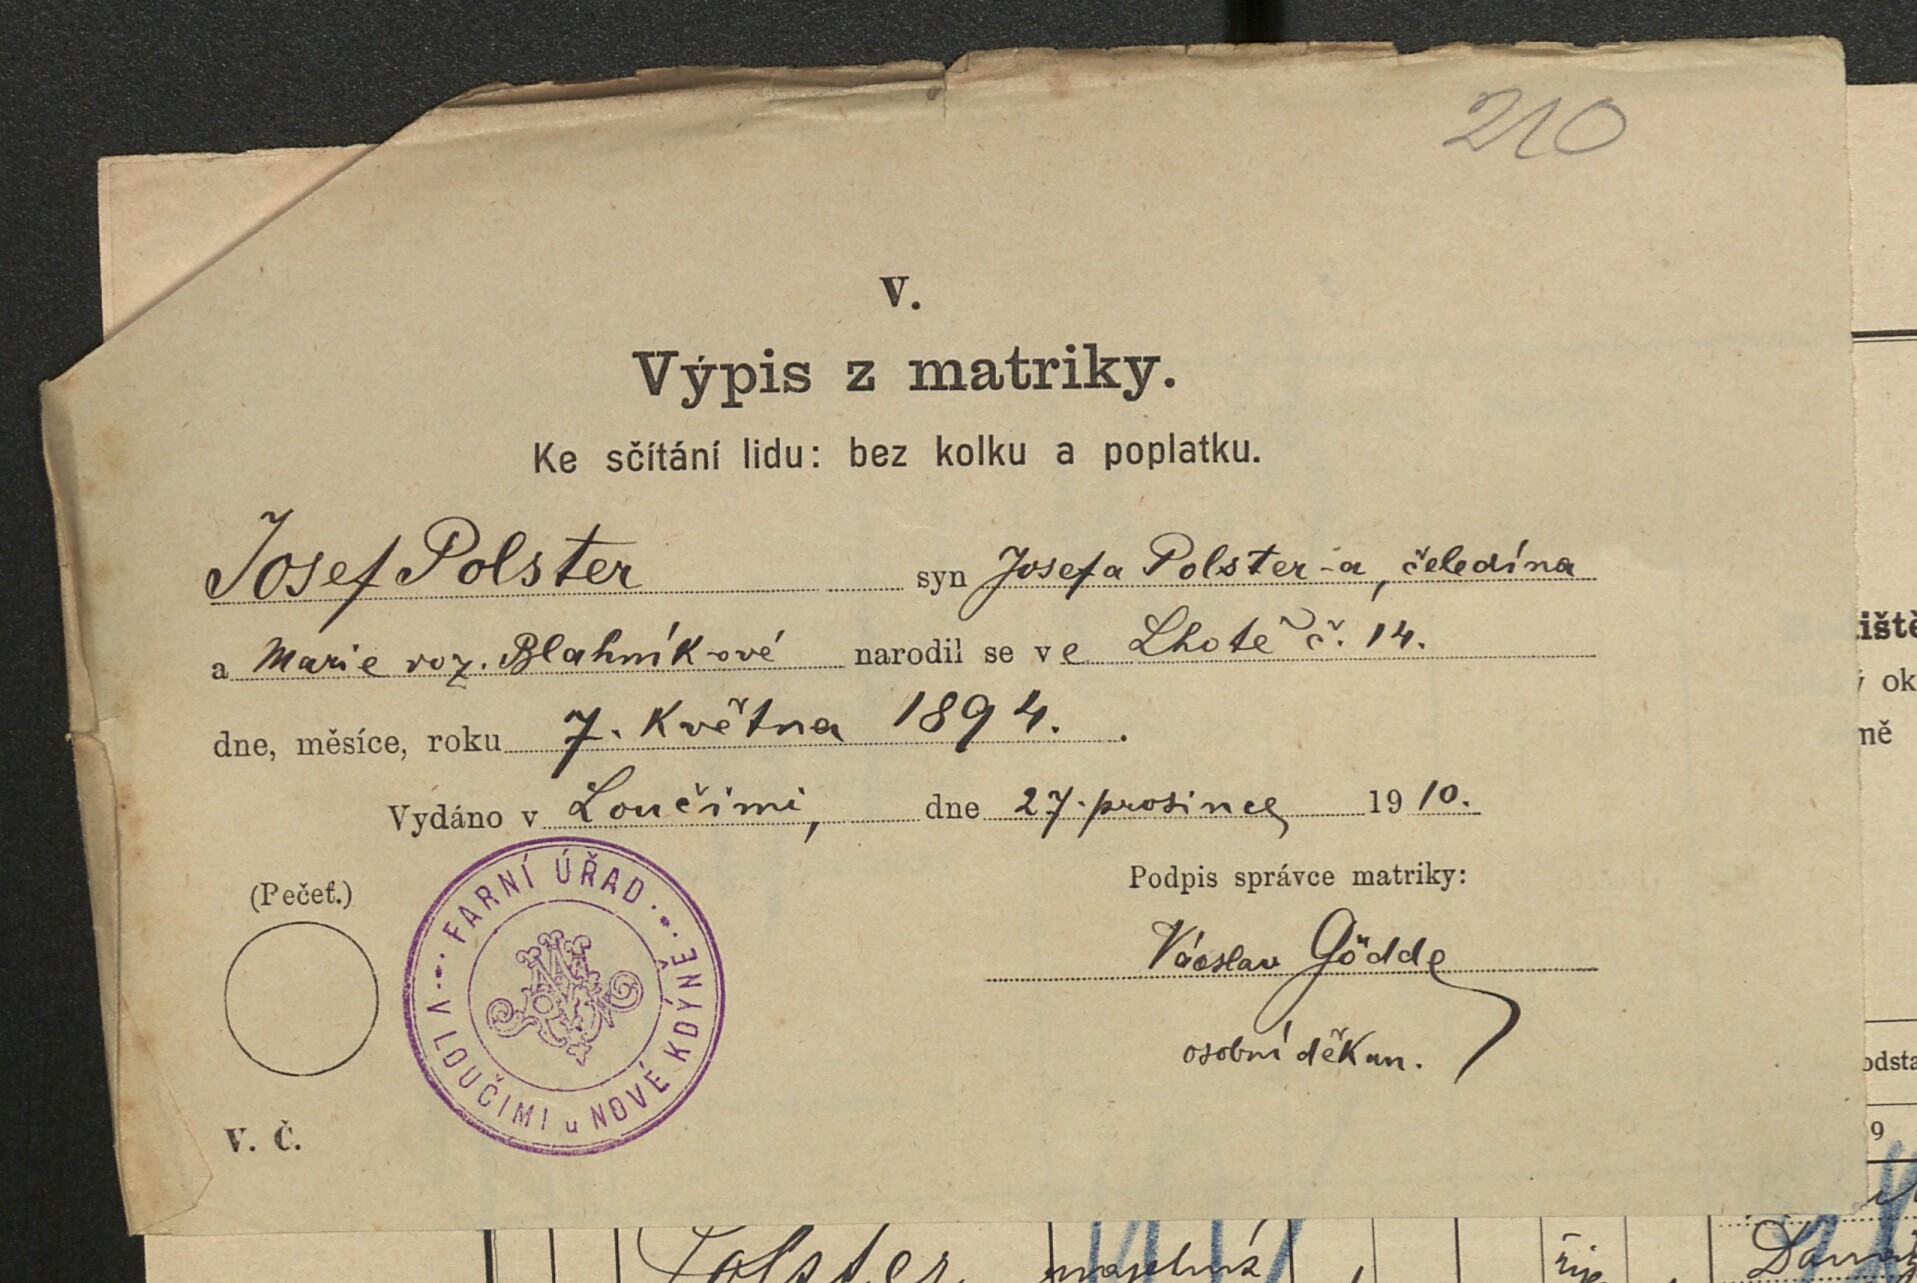 210
V.
Výpis z matriky.
Ke sčítání lidu: bez kolku a poplatku.
Josef Polster syn Josefa Polster-a, čeledína
a Marie roz. Blahník-ové narodil se ve Lhotě č. 14.
dne, měsíce, roku 7. Května 1894.
Vydáno v Loučimi, dne 27. prosince 1910.
(Pečeť.)
Podpis správce matriky:
FARNÍ ÚŘAD
V LOUČIMI u NOVÉ KDÝNĚ
Václav Gödde
osobní děkan.
V. Č.
iště
ý ok
ně
odsta
9
Polster